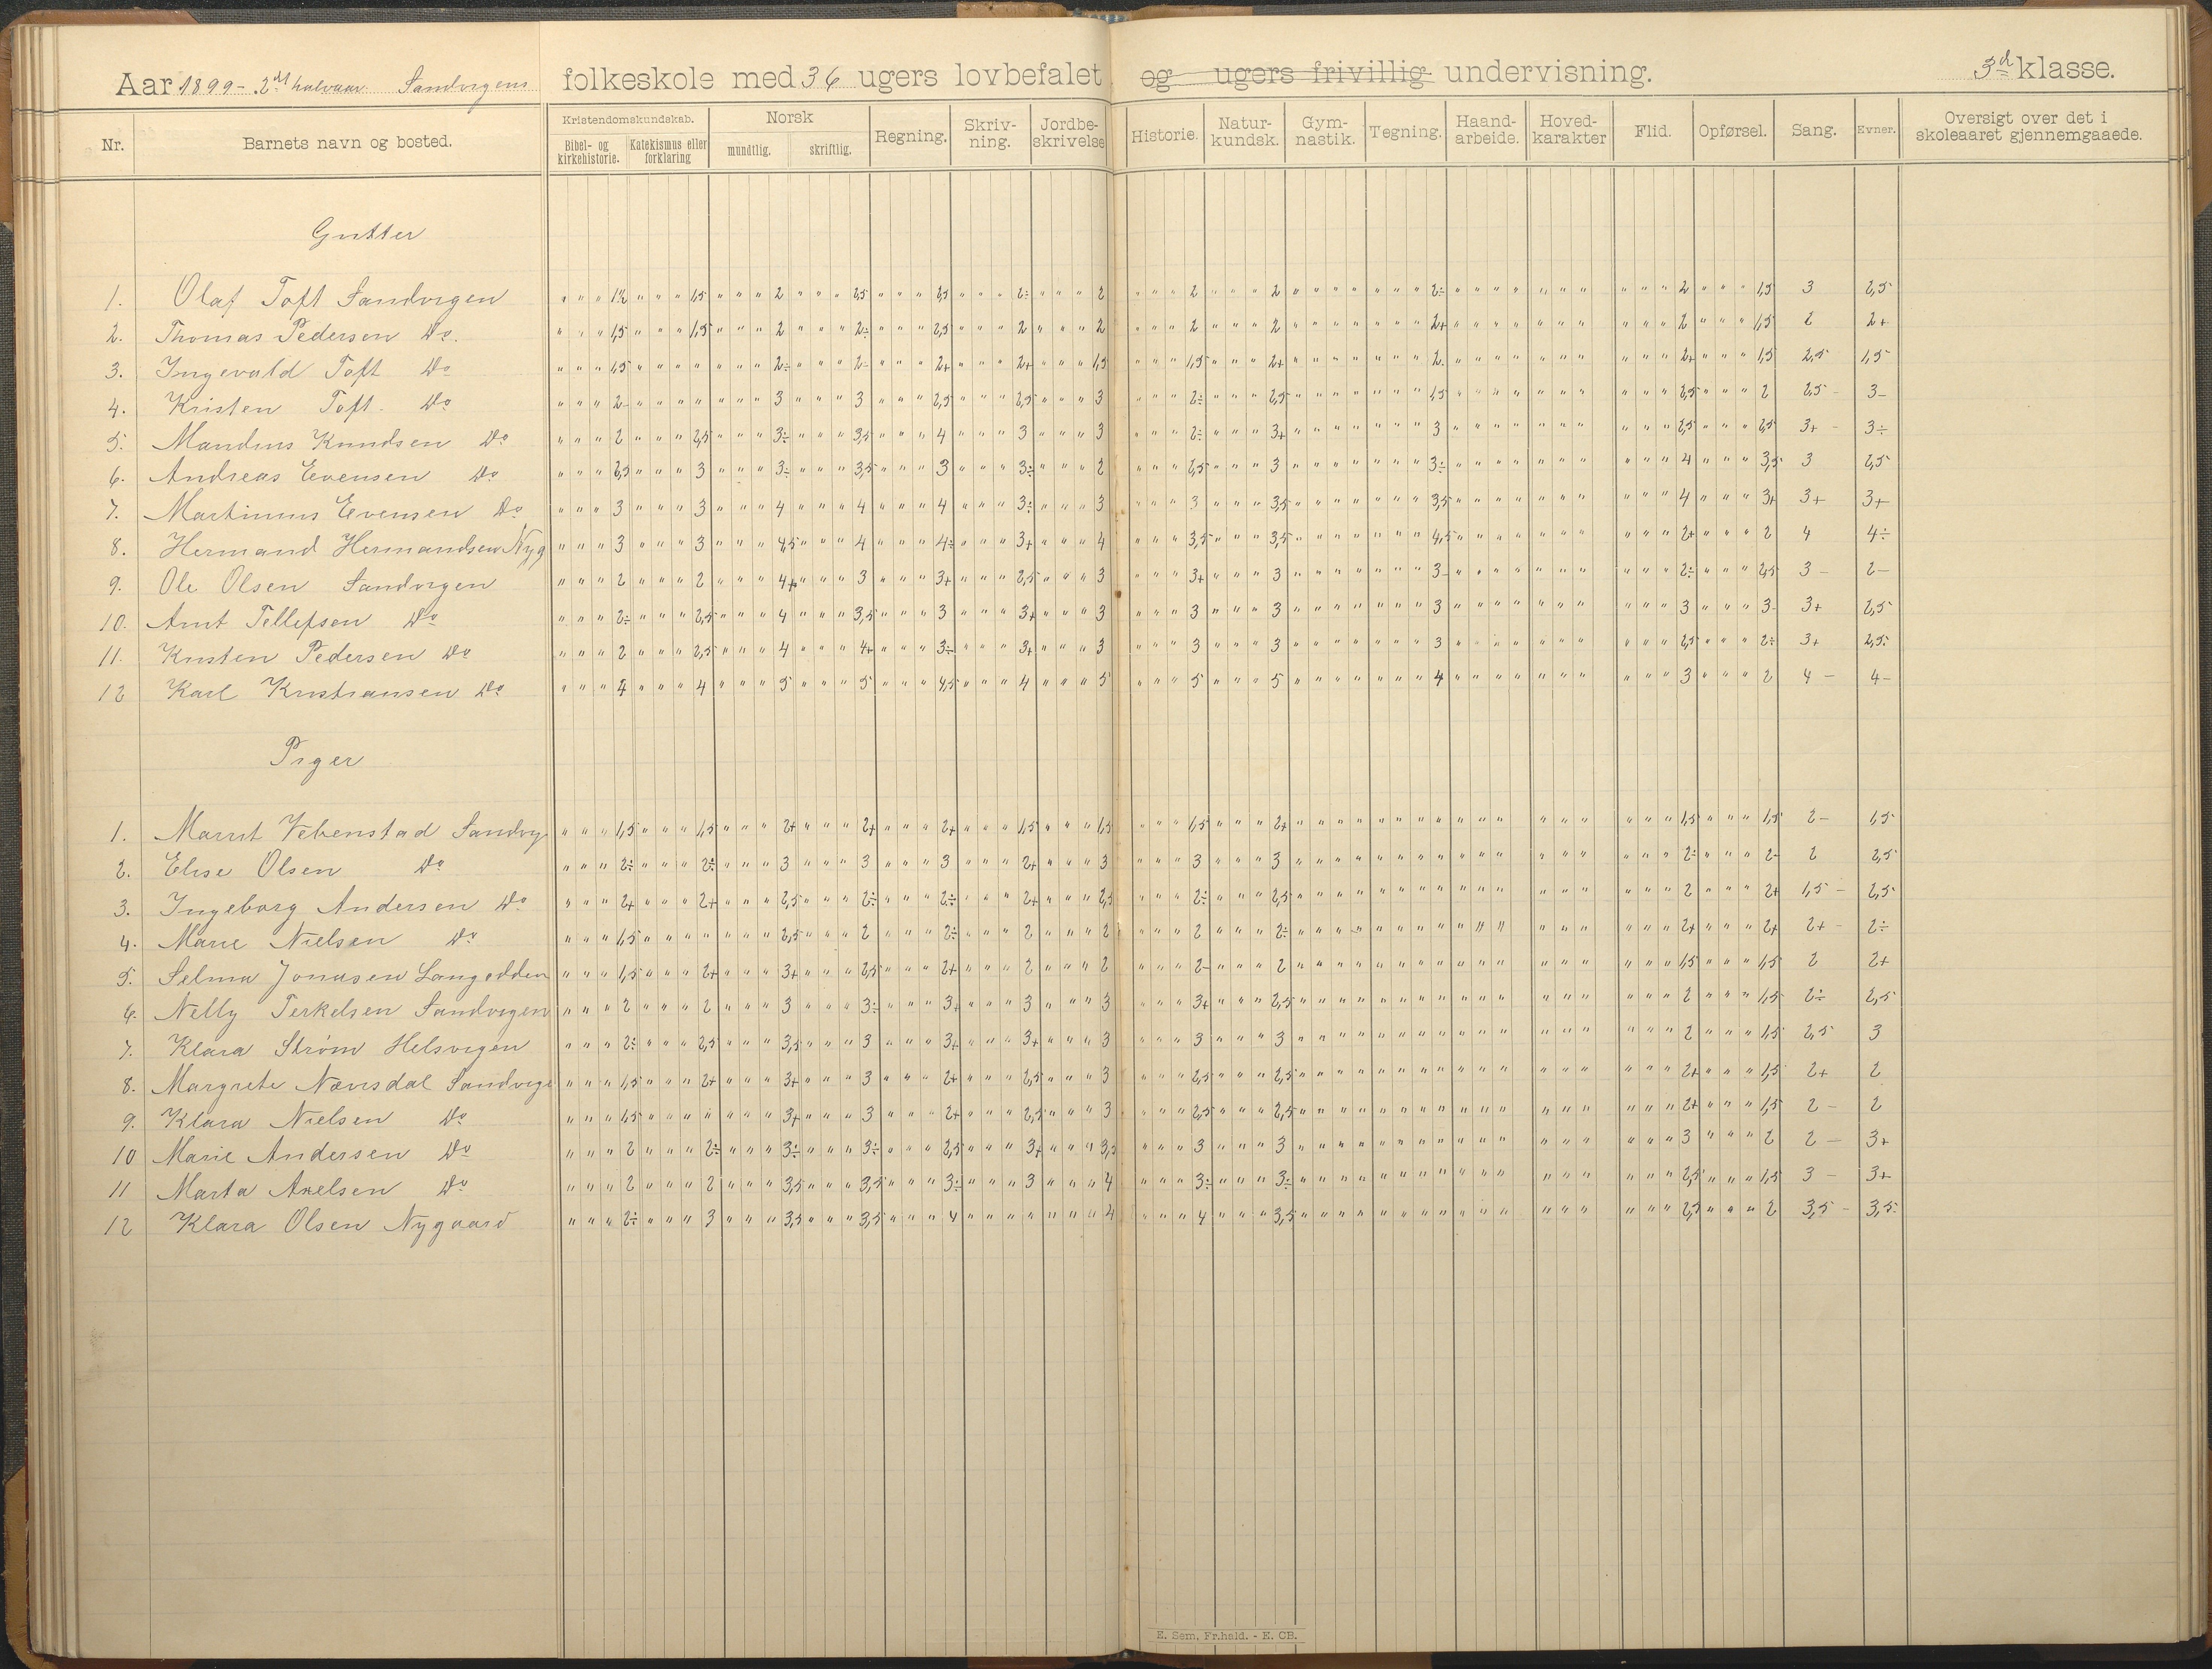 Aar 1899 - 2det halvaar. Sandvigens folkeskole med 36 ugers lovbefalet og ugers frivillig undervisning. 3d klasse.
Nr. Barnets navn og bosted. Kristendomskundskab. Bibel- og kirkehistorie. Katekismus eller forklaring Norsk mundtlig. skriftlig. Regning. Skriv-ning. Jordbe-skrivelse Historie. Natur-kundsk. Gym-nastik. Tegning. Haand-arbeide. Hoved-karakter Flid. Opførsel. Sang. Evner. Oversigt over det i skoleaaret gjennemgaaede.
Gutter
1. Olaf Toft Sandvigen " " " 1½ " " " 1,5 " " " 2 " " " 2,5 " " " 2,5 " " " 2÷ " " " 2 " " " 2 " " " 2 " " " " " " " 2÷ " " " " " " " " " " 2 " " " 1,5 3 2,5
2. Thomas Pedersen Do. " " " 1,5 " " " 1,5 " " " 2 " " " 2÷ " " " 2,5 " " " 2 " " " 2 " " " 2 " " " 2 " " " " " " " 2+ " " " " " " " " " " 2 " " " 1,5 2 2+
3. Ingevald Toft Do " " " 1,5 " " " " " " " 2÷ " " " 2- " " " 2+ " " " 2+ " " " 1,5 " " " 1,5 " " " 2+ " " " " " " " 2. " " " " " " " " " " 2+ " " " 1,5 2,5 1,5
4. Kristen Toft. Do " " " 2- " " " " " " " 3 " " " 3 " " " 2,5 " " " 2,5 " " " 3 " " " 2÷ " " " 2,5 " " " " " " " 1,5 " " " " " " " " " " 2,5 " " " 2 2,5 - 3-
5. Mandius Knudsen Do " " " 2 " " " 2,5 " " " 3÷ " " " 3,5 " " " 4 " " " 3 " " " 3 " " " 2÷ " " " 3+ " " " " " " " 3 " " " " " " " " " " 2,5 " " " 2,5 3+ - 3÷
6. Andreas Evensen Do " " " 2,5 " " " 3 " " " 3÷ " " " 3,5 " " " 3 " " " 3÷ " " " 2 " " " 2,5 " " " 3 " " " " " " " 3÷ " " " " " " " " " " 4 " " " 3,5 3 2,5
7. Martinius Evensen Do " " " 3 " " " 3 " " " 4 " " " 4 " " " 4 " " " 3÷ " " " 3 " " " 3 " " " 3,5 " " " " " " " 3,5 " " " " " " " " " " 4 " " " 3+ 3+ 3+
8. Hermand Hermandsen Nyg " " " 3 " " " 3 " " " 4,5 " " " 4 " " " 4÷ " " " 3+ " " " 4 " " " 3,5 " " " 3,5 " " " " " " " 4,5 " " " " " " " " " " 2+ " " " 2 4 4÷
9. Ole Olsen Sandvigen " " " 2 " " " 2 " " " 4+ " " " 3 " " " 3+ " " " 2,5 " " " 3 " " " 3+ " " " 3 " " " " " " " 3- " " " " " " " " " " 2÷ " " " 2,5 3 - 2-
10. Arnt Tellefsen Do " " " 2÷ " " " 2,5 " " " 4 " " " 3,5 " " " 3 " " " 3+ " " " 3 " " " 3 " " " 3 " " " " " " " 3 " " " " " " " " " " 3 " " " 3- 3+ 2,5
11. Kristen Pedersen Do " " " 2 " " " 2,5 " " " 4 " " " 4+ " " " 3÷ " " " 3+ " " " 3 " " " 3 " " " 3 " " " " " " " 3 " " " " " " " " " " 2,5 " " " 2÷ 3+ 2,5.
12 Karl Kristiansen Do " " " 4 " " " 4 " " " 5 " " " 5 " " " 4,5 " " " 4 " " " 5 " " " 5 " " " 5 " " " " " " " 4 " " " " " " " " " " 3 " " " 2 4 - 4-
Piger
1. Marist Vebenstad Sandvg " " " 1,5 " " " 1,5 " " " 2+ " " " 2+ " " " 2+ " " " 1,5 " " " 1,5 " " " 1,5 " " " 2+ " " " " " " " " " " " " " " " " " " 1,5 " " " 1,5 2- 1,5
2. Elise Olsen Do " " " 2÷ " " " 2÷ " " " 3 " " " 3 " " " 3 " " " 2+ " " " 3 " " " 3 " " " 3 " " " " " " " " " " " " " " " " " " 2÷ " " " 2- 2 2,5
3. Ingeborg Andersen Do " " " 2+ " " " 2+ " " " 2,5 " " " 2÷ " " " 2÷ " " " 2+ " " " 2,5 " " " 2÷ " " " 2,5 " " " " " " " " " " " " " " " " " " 2 " " " 2+ 1,5 - 2,5
4. Marie Nielsen Do " " " 1,5 " " " " " " " 2,5 " " " 2 " " " 2÷ " " " 2 " " " 2 " " " 2 " " " 2÷ " " " " " " " " " " " " " " " " " " 2+ " " " 2+ 2+ - 2÷
5. Selma Jonasen Langodden " " " 1,5 " " " 2+ " " " 3+ " " " 2,5 " " " 2+ " " " 2 " " " 2 " " " 2- " " " 2 " " " " " " " " " " " " " " " " " " 1,5 " " " 1,5 2 2+
6. Nelly Terkelsen Sandvigen " " " 2 " " " 2 " " " 3 " " " 3÷ " " " 3+ " " " 3 " " " 3 " " " 3+ " " " 2,5 " " " " " " " " " " " " " " " " " " 2 " " " 1,5 2÷ 2,5
7. Klara Strøm Helsvigen " " " 2÷ " " " 2,5 " " " 3,5 " " " 3 " " " 3+ " " " 3+ " " " 3 " " " 3 " " " 3 " " " " " " " " " " " " " " " " " " 2 " " " 1,5 2,5 3
8. Margrete Nævisdal Sandvige " " " 1,5 " " " 2+ " " " 3+ " " " 3 " " " 2+ " " " 2,5 " " " 3 " " " 2,5 " " " 2,5 " " " " " " " " " " " " " " " " " " 2+ " " " 1,5 2+ 2
9. Klara Nielsen Do " " " 1,5 " " " " " " " 3+ " " " 3 " " " 2+ " " " 2,5 " " " 3 " " " 2,5 " " " 2,5 " " " " " " " " " " " " " " " " " " 2+ " " " 1,5 2 - 2
10 Marie Andersen Do " " " 2 " " " 2÷ " " " 3÷ " " " 3÷ " " " 2,5 " " " 3+ " " " 3,5 " " " 3 " " " 3 " " " " " " " " " " " " " " " " " " 3 " " " 2 2 - 3+
11 Marta Axelsen Do " " " 2 " " " 2 " " " 3,5 " " " 3,5 " " " 3÷ " " " 3 " " " 4 " " " 3÷ " " " 3÷ " " " " " " " " " " " " " " " " " " 2,5 " " " 1,5 3 - 3+
12 Klara Olsen Nygaard " " " 2÷ " " " 3 " " " 3,5 " " " 3,5 " " " 4 " " " " " " " 4 " " " 4 " " " 3,5 " " " " " " " " " " " " " " " " " " 2,5 " " " 2 3,5 - 3,5
E. Sem, Fr.hald. - E. CB.